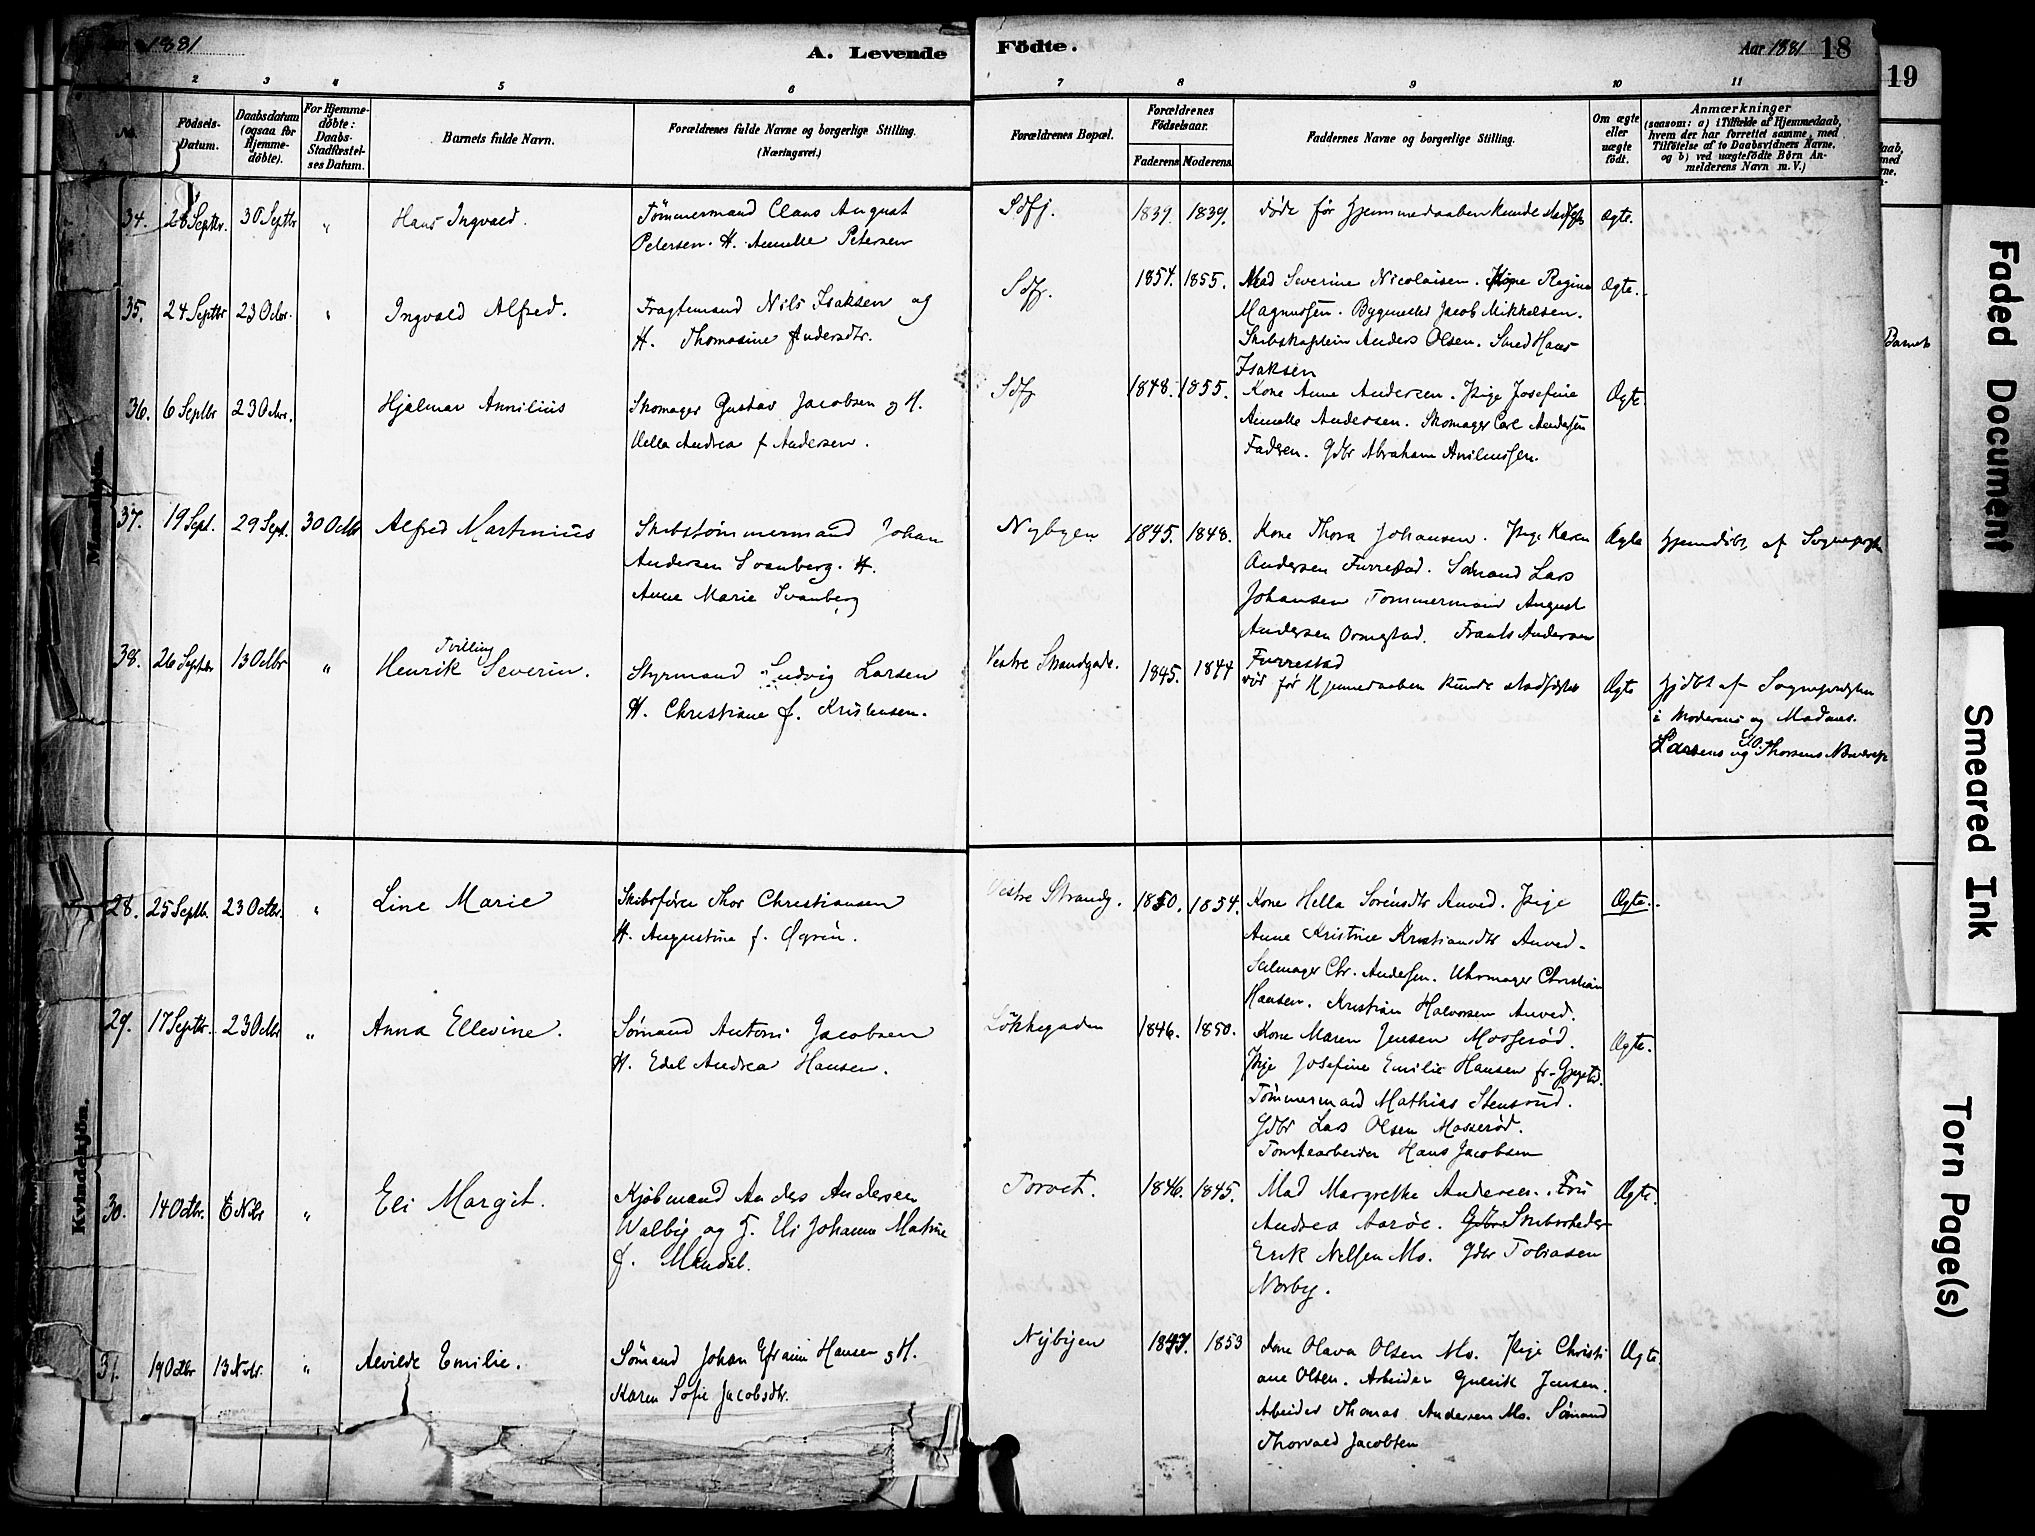 1881
A. Levende
Födte.
Aar 1881
18
19
1 2 3 4 5 6 7 8 9 10 11
No.
Födsels-
Datum.
Daabsdatum
(ogsaa for
Hjemme-
döbte).
For Hjemme-
döbte:
Daabs-
Stadfæstel-
ses Datum.
Barnets fulde Navn.
Forældrenes fulde Navne og borgerlige Stilling.
(Næringsvei.)
Forældrenes Bopæl.
Forældrenes
Födselsaar.
Faderens
Moderens.
Faddernes Navne og borgerlige Stilling.
Om ægte
eller
uægte
født.
Anmærkninger
(saasom: a) i Tilfælde af Hjemmedaab,
hvem der har forrettet samme, med
Tilföielse af to Daabsvidners Navne,
og b) ved uægtefödte Börn An-
melderens Navn m. V.)
Mandkjön.
34. 28 Septbr. 30 Septbr " Hans Ingvald.
Tömmermand Claus August
Petersen. H. Annette Petersen
Sdfj. 1839. 1839. døde før Hjemmedaaben kunde stadf Ægte.
35. 24 Septbr 23 Octbr. " Ingvald Alfred.
Fragtemand Nils Isaksen og
H. Thomasine Andersdtr.
Sdfj. 1854. 1855. Mad Severine Nicolaisen. Regine
Magnussen. Bygmester Jacob Mikkelsen.
Skibskaptein Anders Olsen. Smed Hans
Isaksen
Ægte.
36. 6 Septbr 23 Octbr. Hjalmar Annilius
Skomager Gustav Jacobsen og H.
Hella Andrea f. Andersen.
Sdfj 1848. 1855. Kone Anne Andersen. Pige Josefine
Annette Andersen. Skomager Carl Andersen
Faderen. Gdbr Abraham
Ægte.
37. 19 Sept. 29 Sept. 30 Octbr Alfred Martinius
Skibstømmermand Johan
Andersen Svanberg. H.
Anne Marie Svanberg
Nybyen 1845. 1848. Kone Thora Johansen. Pige Karen
Andersen Furrestad. Sømand Lars
Johansen Tømmermand August
Andersen Ormestad. Frants Andersen
Furrestad
Ægte Hjemdöbt af Sognepr
38. 26 Septbr 13 Octbr "
Tvilling
Henrik Severin.
Styrmand Ludvig Larsen
H. Christiane f. Kristensen.
Vestre Strandgade. 1845. 1844
død før Hjemmedaaben kunde stadfæstes
Ægte Hjdöbt af Sognepræsten
i Moderens og Madmes.
Larsens og Thorsens Nærværelse
Kvindekjön.
28. 25 Septbr. 23 Octbr. " Line Marie
Skibsfører Thor Christiansen
H. Augustine f. Øgren.
Vestre Strandg. 1850. 1854. Kone Hella Sørensdtr Anved. Pige
Anne Kristine Kristiansdtr Anved.
Seilmager Chr. Andersen. Uhrmager Christian
Hansen. Kristian Halvorsen Anved.
Ægte.
29. 17 Septbr. 23 Octbr " Anna Ellevine.
Sømand Anton Jacobsen
H. Edel Andrea Hansen.
Løkkegaden 1846. 1850. Kone Maren Jensen Mosserød.
Pige Josefine Emilie Hansen fr.
Tømmermand Mathias Stensrud.
Gdbr Lars Olsen Mosserød.
Tomtearbeider Hans Jacobsen
Ægte.
30. 14 Octbr. 6 Nvbr " Eli Margit.
Kjøbmand Anders Andersen
Walbÿ og F. Eli Johanne Mathine
f. Mendal.
Torvet. 1846. 1845. Mad Margrethe Andersen. Fru
Andrea Aarøe. Skibsreder
Erik Nilsen Ms. Gdbr Tobiasen
Norby.
Ægte.
31. 19 Octbr 13 Nvbr. " Alvilde Emilie.
Sømand Johan Efraim Hansen og H.
Karen Sofie Jacobsdtr.
Nybyen 1847. 1853 Kone Olava Olsen Ms. Pige Christi
ane Olsen. Arbeider Jensen.
Arbeider Thomas Andersen Ms. Sømand
Thorvald Jacobsen
Ægte.
Faded Document
Smeared Ink
Torn Page(s)